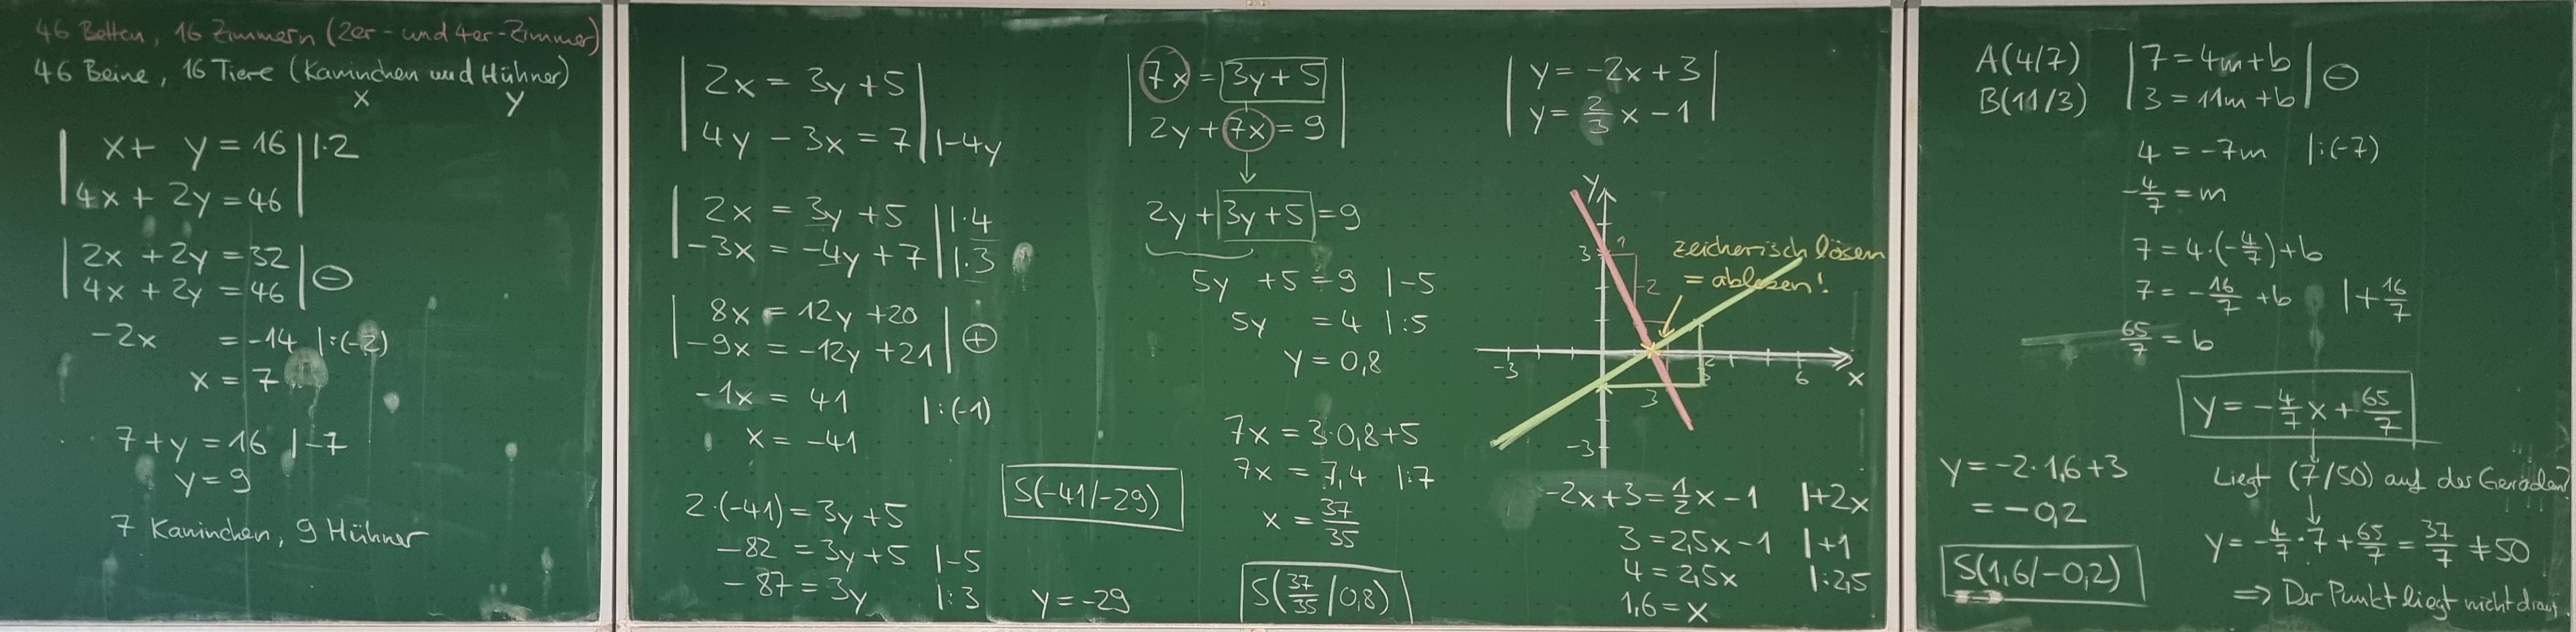 46 Betten, 16 Zimmern (2er- und 4er-Zimmer)
46 Beine, 16 Tiere (Kaninchen und Hühner)
x y
x + y = 16 |·2
4x + 2y = 46
2x + 2y = 32
4x + 2y = 46
⊖
-2x = -14 |:(-2)
x = 7
7 + y = 16 |-7
y = 9
7 Kaninchen, 9 Hühner
2x = 3y + 5
4y - 3x = 7 |-4y
2x = 3y + 5 |·4
-3x = -4y + 7 |·3
8x = 12y + 20
-9x = -12y + 21
⊕
-1x = 41 |:(-1)
x = -41
2·(-41) = 3y + 5
-82 = 3y + 5 |-5
-87 = 3y |:3
y = -29
S(-41/-29)
7x = 3y + 5
2y + 7x = 9
2y + 3y + 5 = 9
5y + 5 = 9 |-5
5y = 4 |:5
y = 0,8
7x = 3·0,8+5
7x = 7,4 |:7
x = 37/35
S(37/35 / 0,8)
y = -2x + 3
y = 2/3 x - 1
y
3
1
-2
zeichnerisch lösen
= ablesen!
-3
2
3
6
x
-3
-2x + 3 = 1/2 x - 1 |+2x
3 = 2,5x - 1 |+1
4 = 2,5x |:2,5
1,6 = x
y = -2·1,6+3
= -0,2
S(1,6/-0,2)
A(4/7)
B(11/3)
7 = 4m + b
3 = 11m + b
⊖
4 = -7m |:(-7)
-4/7 = m
7 = 4·(-4/7) + b
7 = -16/7 + b |+16/7
65/7 = b
y = -4/7 x + 65/7
Liegt (7/50) auf der Geraden?
y = -4/7 · 7 + 65/7 = 37/7 ≠ 50
⇒ Der Punkt liegt nicht drauf.